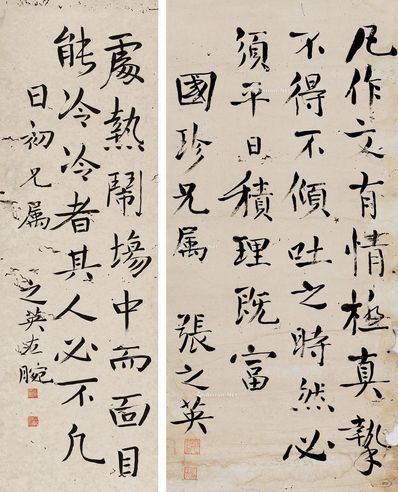 凡作文有情極真摯
不得不傾吐之時然必
須平日積理既富
國珍兄属 張之英
處熱鬧場中而面目
能冷冷者其人必不凡
日初兄属 之英左腕